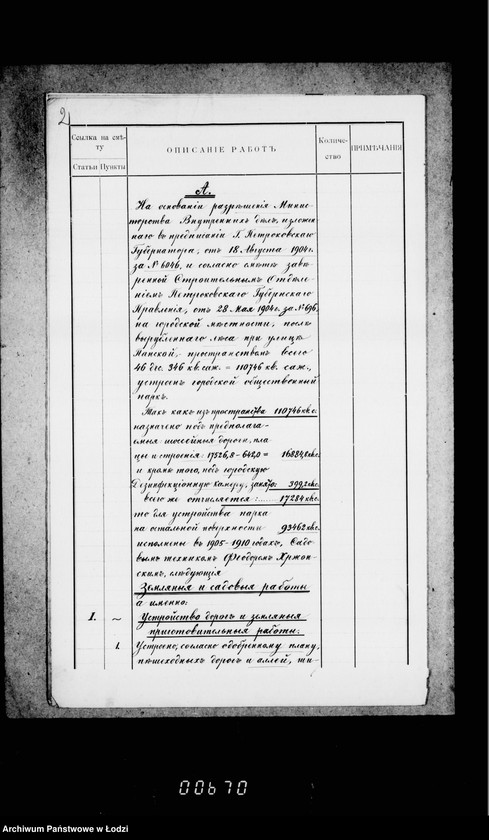 2
Ссылка на смѣ-
ту
Статьи Пункты
ОПИСАНІЕ РАБОТЪ
Количе-
ство
ПРИМѢЧАНІЯ
А.
На основаніи разрѣшенія Мини-
стерства Внутреннихъ Дѣлъ, изложен-
наго въ предписаніи Г. Петроковскаго
Губернатора, отъ 18 Августа 1904 г.
за № 6046, и согласно смѣтѣ завѣ-
ренной Строительнымъ Отдѣле-
ніемъ Петроковскаго Губернскаго
Правленія, отъ 28 Мая 1904 г. за № 696,
на городской мѣстности, послѣ
вырубленнаго лѣса при улицѣ
Панской, пространствомъ всего
46 дес. 346 кв. саж. = 110746 кв. саж.,
устроенъ городской общественный
паркъ.
Такъ какъ изъ пространства 110746 кв. с.
назначено подъ предполага-
емыя шоссейныя дороги, пла-
цы и строенія: 17526,8 - 642,0 = 16884,8 кв. с.
и кромѣ того, подъ городскую
Дезинфекціонную камеру, 399,2 кв. с.
всего же отчисляется: 17284 кв. с.
то для устройства парка
на остальной поверхности 93462 кв. с.
исполнены въ 1905-1910 годахъ, Садо-
вымъ техникомъ Ѳеодоромъ Хржон-
скимъ, слѣдующія
Земляныя и садовыя работы
а именно:
I. ~ Устройство дорогъ и земляныя
приготовительныя работы.
1. Устроено, согласно одобренному плану,
пѣшеходныхъ дорогъ и аллей, ши-
00670
Archiwum Państwowe w Łodzi